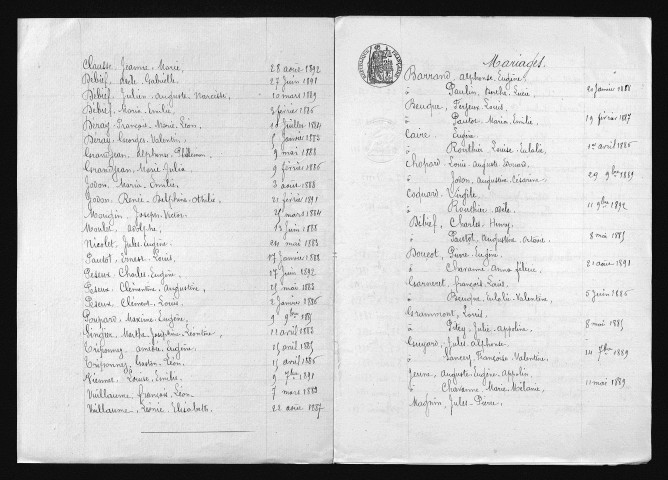 Claasse, Jeanne Marie 28 août 1892
Bébief, Adèle Gabrielle 27 Juin 1891
Bébief, Julien Auguste Narcisse 10 mars 1889
Bébief, Maria Emilie 3 février 1886
Beray, François Marie Léon Juillet 1884
Beray, Georges Valentin 1883
Grandjean, Alphonse Philémon 9 mai 1888
Grandjean, Marie Julia 9 février 1886
Jodon, Maria Emilie 3 août 1888
Jodon, Renée Delphine Othilie 21 février 1891
Mougin, Joseph Victor mars 1884
Moulet, Adolphe 13 Juin 1888
Nicolet, Jules Eugène mai 1883
Pautot, Ernest Louis 17 Janvier 1888
Peseux, Charles Eugène 17 Juin 1892
Peseux, Clémentine Augustine mai 1883
Peseux, Clément Louis 2 Janvier 1886
Poupard, Maxime Eugène 9 9bre 1885
Martha Joséphine Léontine 11 avril 1883
Amédée Eugène 25 avril 1885
Gaston Léon 15 avril 1886
Viennet, Louise Emilie 9 7bre 1891
Vuillaume, François Léon 7 mars 1883
Vuillaume, Léonie Elisabeth 22 août 1887
Mariages.
Barrand, Alphonse Eugène
à Paulin, Berthe Lucie 20 Janvier 1888
Beuque, Ferjeux Louis
à Pautot, Maria Emilie 19 février 1887
Caire, Eugène
à Routhier, Louise Eulalie 1er avril 1886
Chopard, Louis Auguste Edmond
à Jodon, Augustine Césarine 29 9bre 1889
Coquard, Virgile
à Routhier, Adèle 11 9bre 1892
Bébief, Charles Henry
à Pautot, Augustine Octavie 8 mai 1885
Doucot, Pierre Eugène
à Chavanne, Anna Félicie 21 août 1891
Garneret, François Louis
à Beuque, Eulalie Valentine 5 Juin 1886
Grammont, Louis
à Pétey, Julie Appoline 8 mai 1885
Guyard, Jules Alphonse
à Lancey, Françoise Valentine 14 7bre 1889
Jeune, Auguste Eugène Appolin
à Chavanne, Marie Mélanie 11 mai 1889
Magnin, Jules Pierre